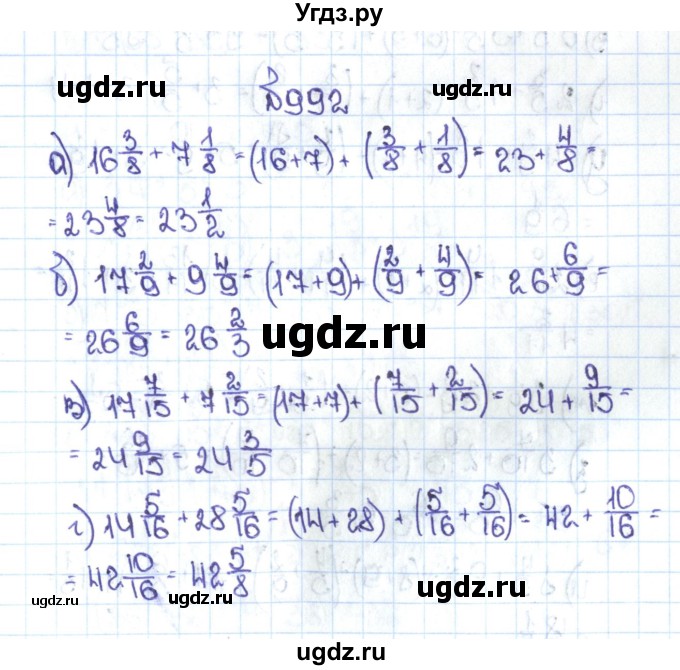 Угдз.ру
ugdz.ru ugdz.ru
№992
а) 16 3/8 + 7 1/8 = (16+7) + (3/8 + 1/8) = 23 + 4/8 =
= 23 4/8 = 23 1/2
б) 17 2/9 + 9 4/9 = (17+9) + (2/9 + 4/9) = 26 + 6/9 =
= 26 6/9 = 26 2/3
ugdz.ru
в) 17 7/15 + 7 2/15 = (17+7) + (7/15 + 2/15) = 24 + 9/15 =
= 24 9/15 = 24 3/5
г) 14 5/16 + 28 5/16 = (14+28) + (5/16 + 5/16) = 42 + 10/16 =
= 42 10/16 = 42 5/8
ugdz.ru ugdz.ru ugdz.ru
ugdz.ru